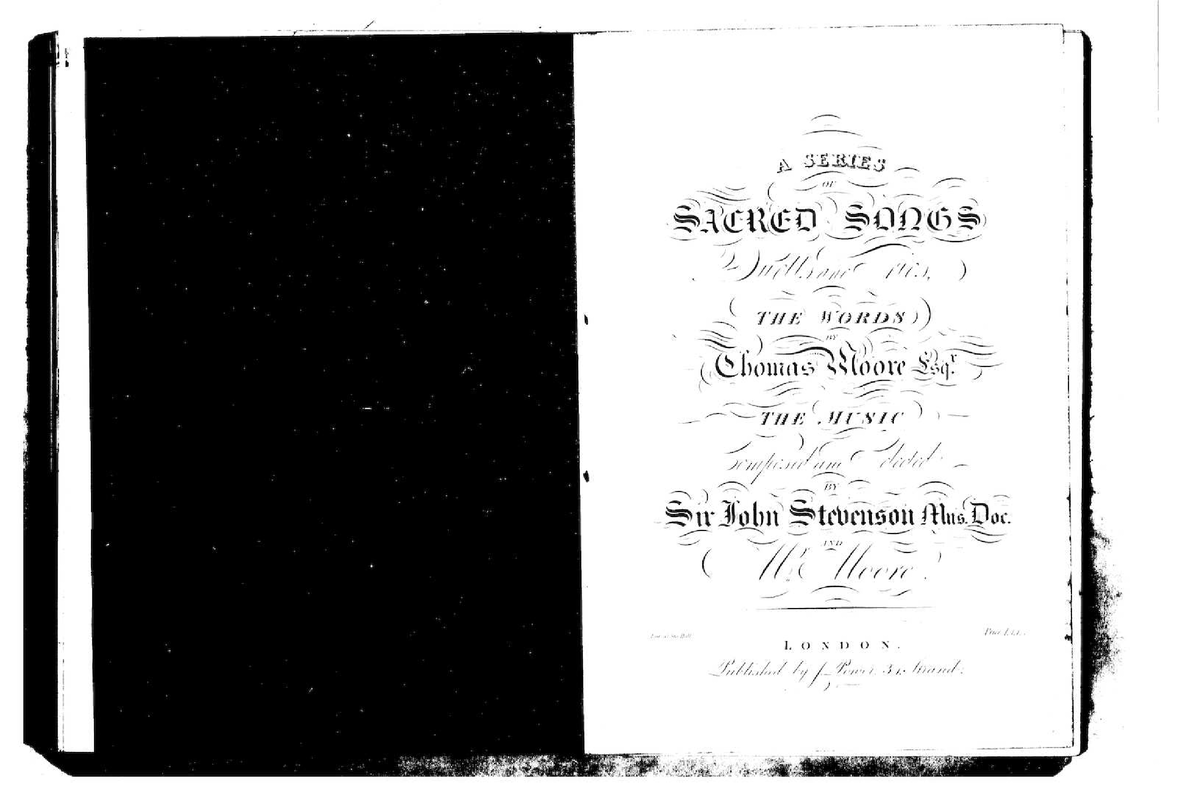 A SERIES
OF
SACRED SONGS
Duetts and Trios,
THE WORDS
BY
Thomas Moore Esqr.
THE MUSIC
Composed and Selected
BY
Sir John Stevenson Mus. Doc.
AND
Mr. Moore.
LONDON.
Published by J. Power 34, Strand.